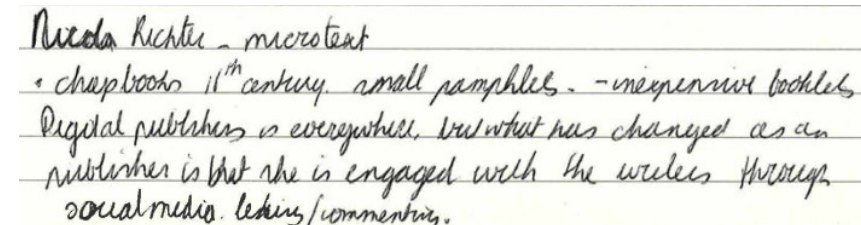 Nicola Richter - microtext
• chapbooks 16th century. small pamphlets. - inexpensive booklets
Digital publishers is everywhere, but what has changed as an
publisher is that she is engaged with the writers through
social media. /commenting.